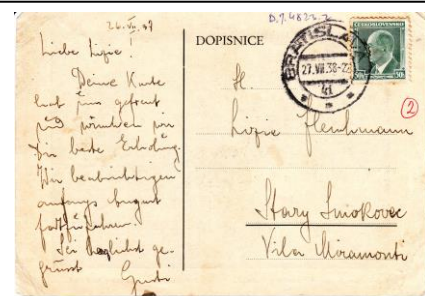 Liebe Lizie!
Deine Karte
hat uns gefreut
und wünschen wir
Dir beste Erholung.
Wir beabsichtigen
anfangs August
fortzufahren.
Sei herzlichst ge-
grüsst Gusti
DOPISNICE
BRATISLAVA
27.VII.38-22
ČESKOSLOVENSKO
50h
2
Lizie
Stary Smokovec
Vila Miramonti